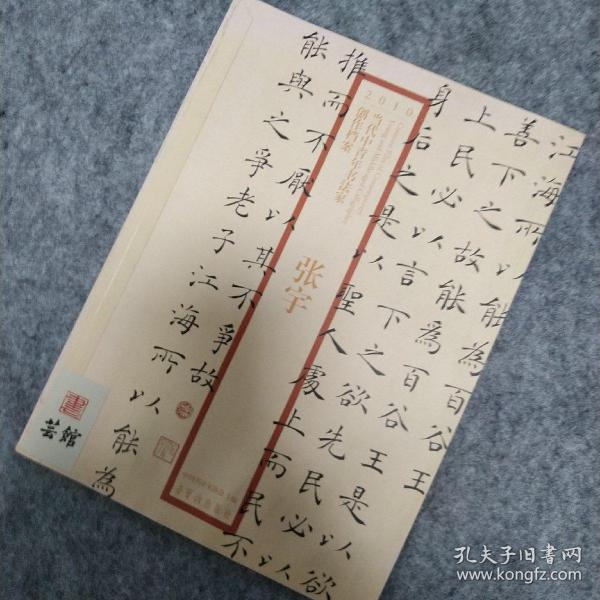 江海所以能為百谷王
善下之故能為百谷王是以欲
上民必以言下之欲先民必以
身后之是以聖人處上而民不
推而不厭以其不爭故
能與之爭老子江海所以能為
2010
当代中青年书法家
创作档案
张宇
書
芸館
孔夫子旧書网
www.kongfz.com